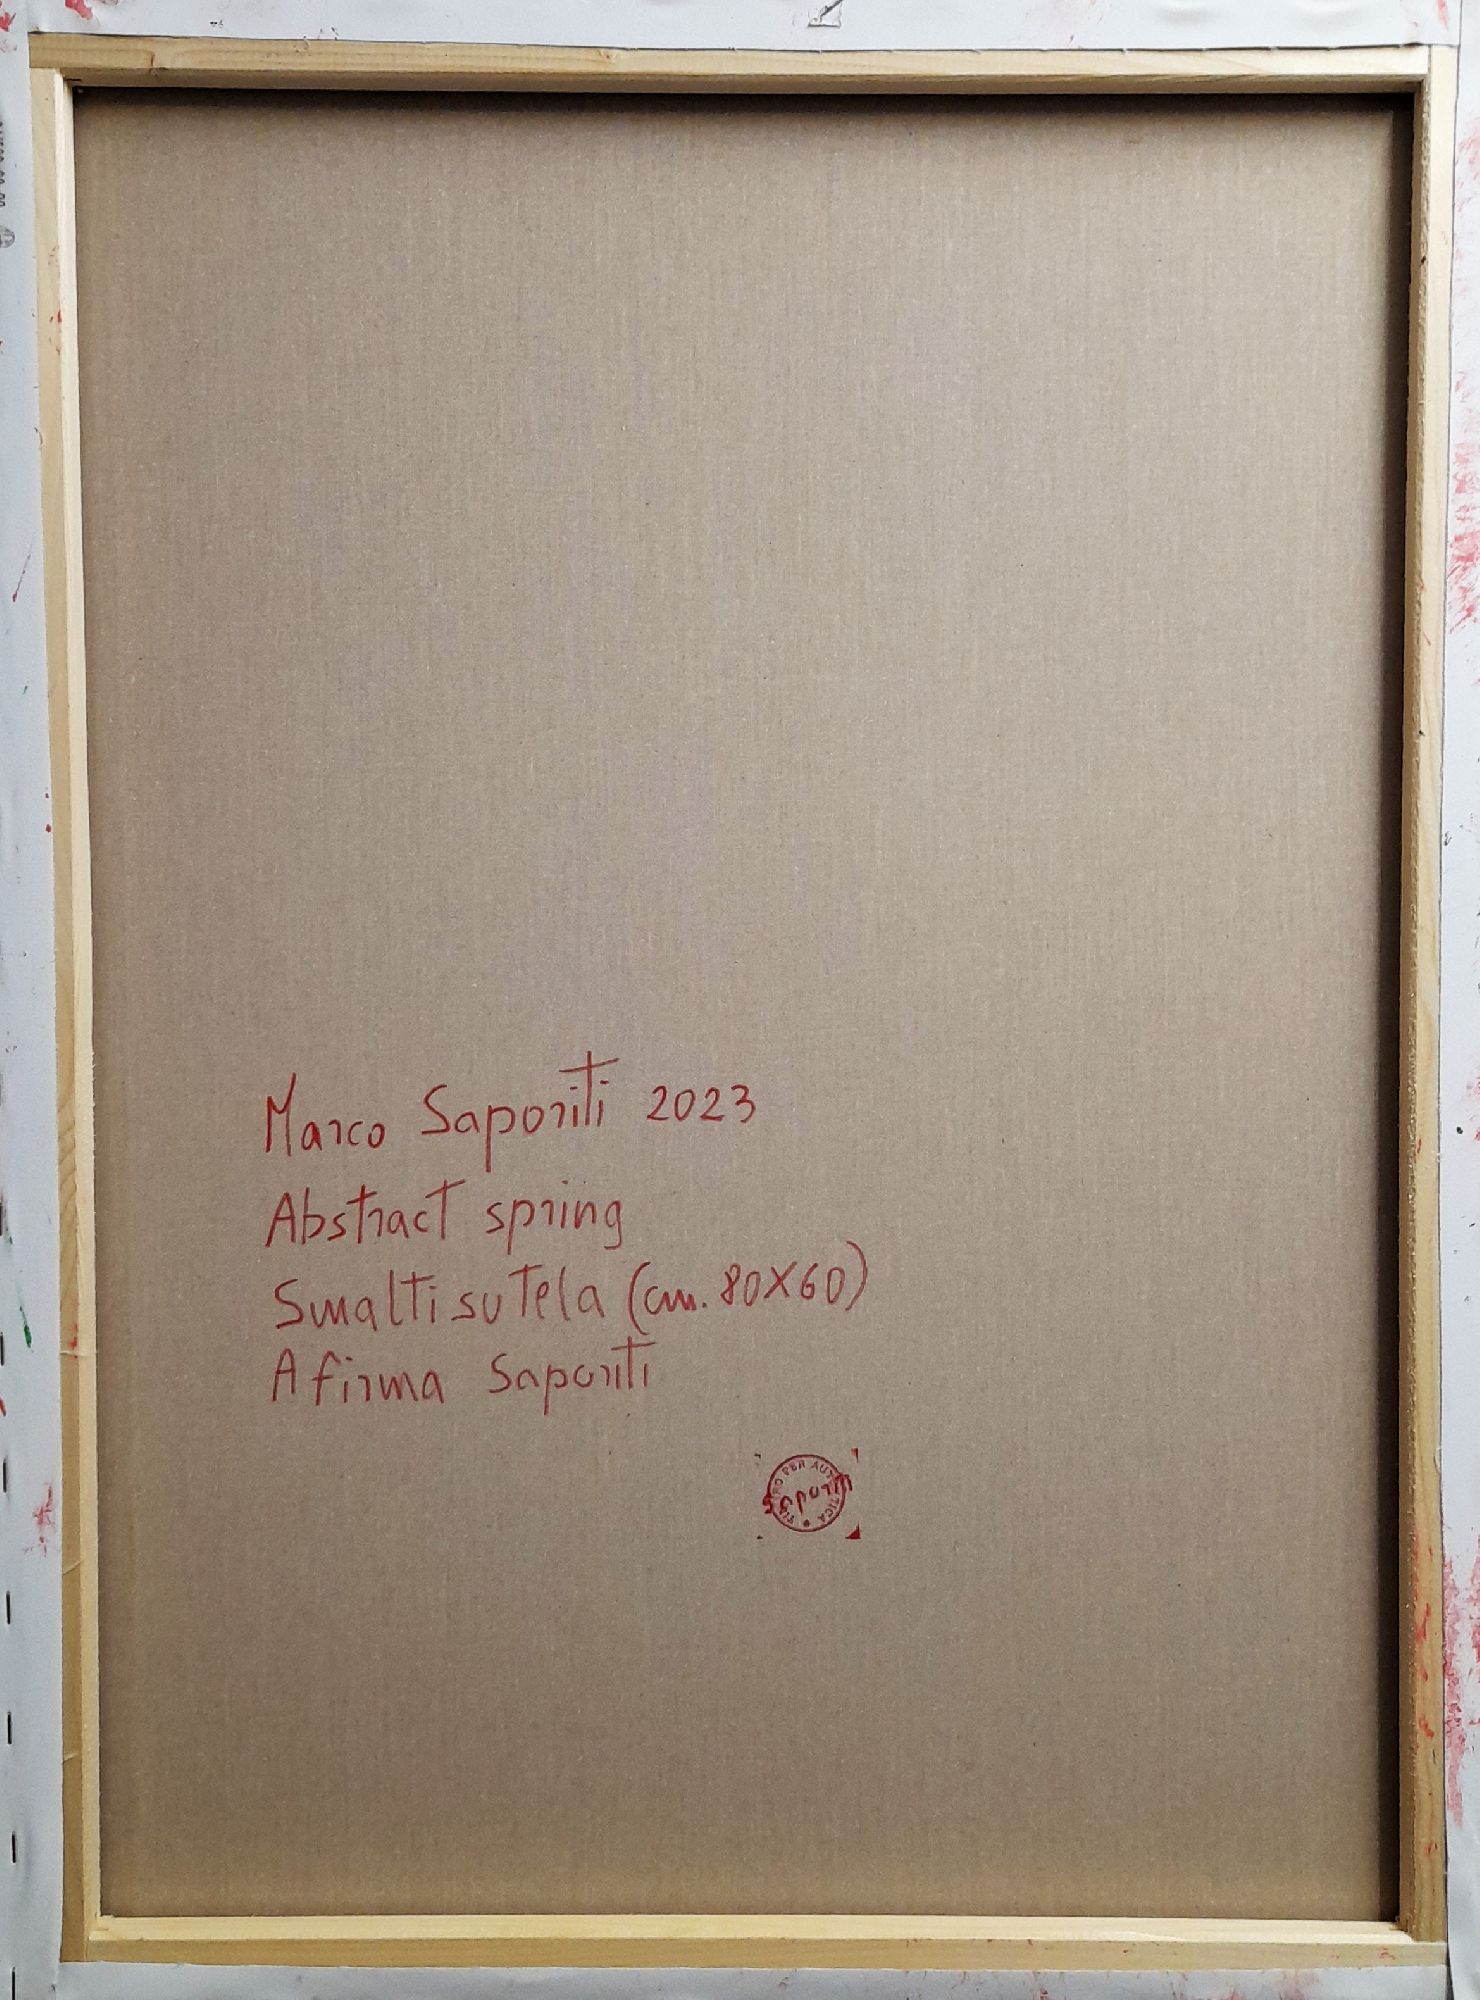 Marco Saporiti 2023
Abstract spring
Smalti su tela (cm. 80X60)
A firma Saporiti
PER AUT